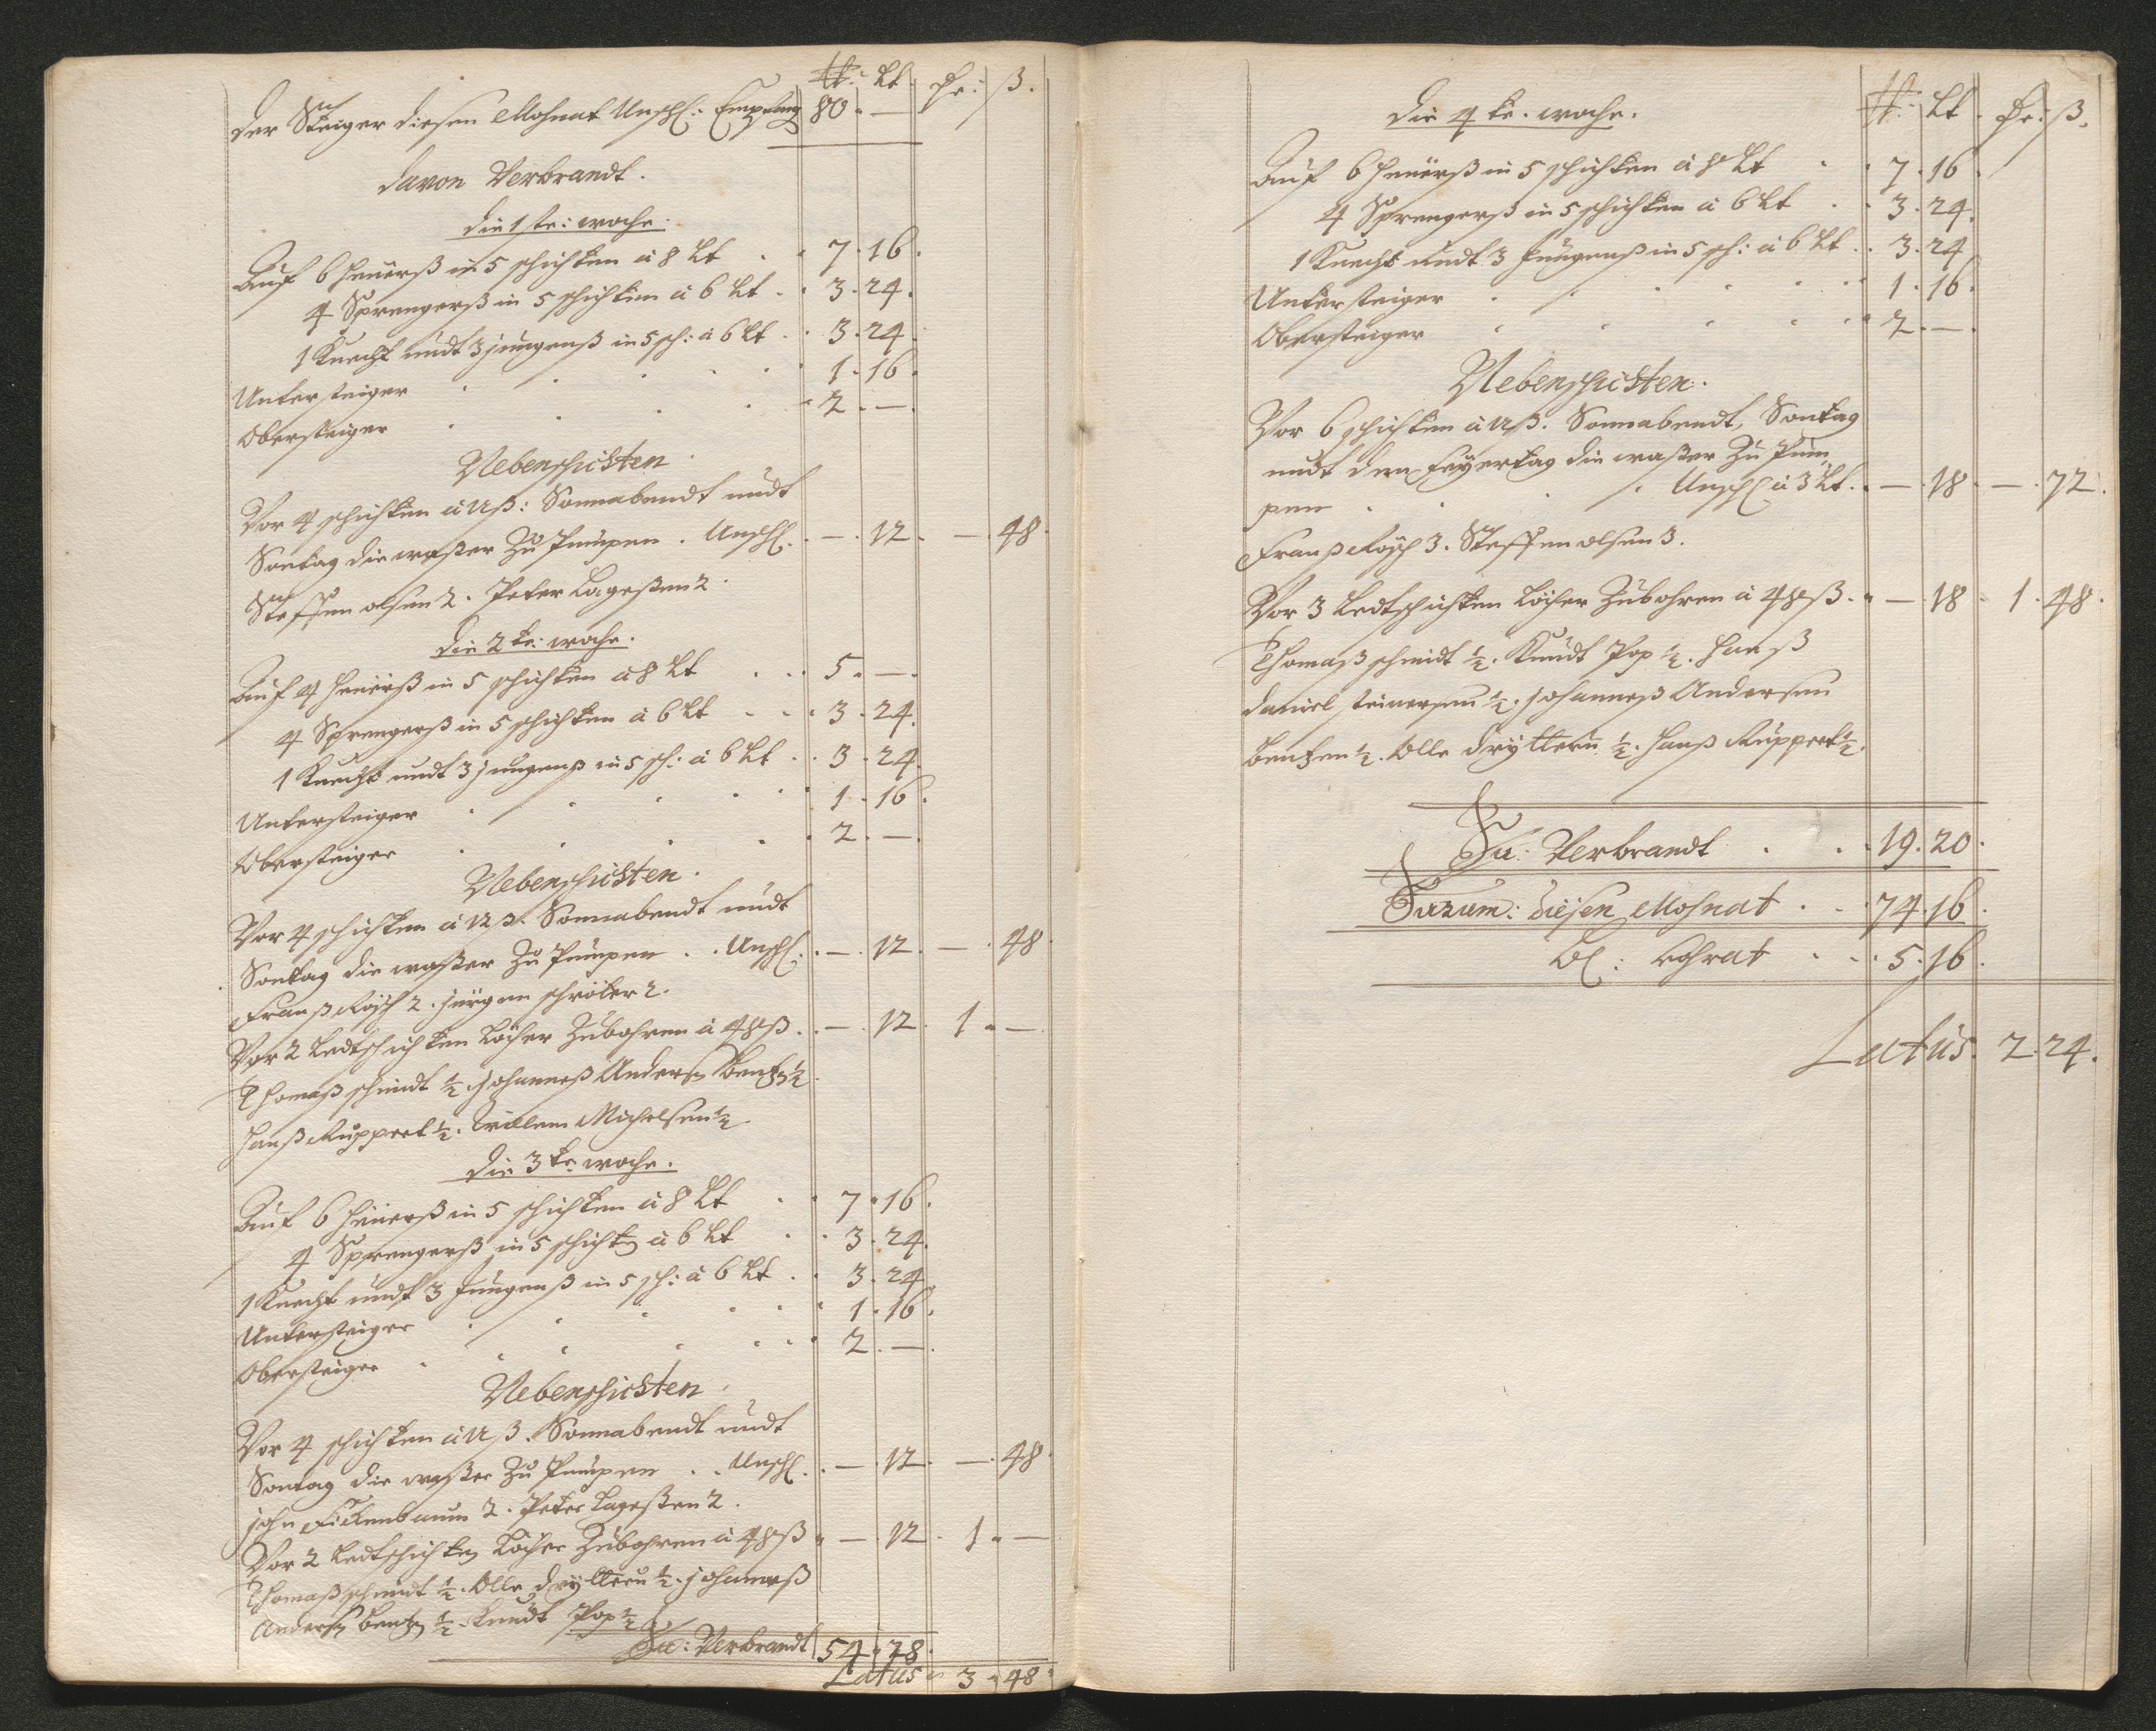 ℔: Lt. Dr: ß.
der Steiger diesen Mohnat Unschl: Empfang 80. —
davon Verbrandt.
die 1 te: woche.
Auf 6 heuerß in 5 schichten à 8 Lt . . 7. 16.
4 Sprengerß in 5 schichten à 6 Lt . . 3. 24.
1 Knecht undt 3 jungenß in 5 sch: à 6 Lt . . 3. 24.
Untersteiger . . . . . . 1. 16.
Obersteiger . . . . . 2. —.
Nebenschichten.
Vor 4 schichten à 12 ß: Sonnabendt undt
Sontag die waßer Zu Pumpen . Unschl. . —. 12. —. 48.
Steffen olsen 2. Peter Lageßen 2.
die 2 te: woche.
Auf 4 heuerß in 5 schichten à 8 Lt . . . 5. —.
4 Sprengerß in 5 schichten à 6 Lt . . . 3. 24.
1 Knecht undt 3 jungenß in 5 sch: à 6 Lt . . 3. 24.
Untersteiger . . . . . . 1. 16.
Obersteiger . . . . . 2. —.
Nebenschichten.
Vor 4 schichten à 12 ß. Sonnabendt undt
Sontag die waßer Zu Pumpen . . Unschl. . —. 12. —. 48
Franß Rösch 2. jürgen schröter 2.
Vor 2 Ledtschichten Löcher Zubohren à 48 ß. . —. 12. 1. —.
Thomaß schmidt ½. johanneß Anders Bentz ½.
Hanß Ruppert ½. Willem Michelsen ½
die 3 te woche.
Auf 6 heuerß in 5 schichten à 8 Lt . . 7. 16.
4 Sprengerß in 5 schicht à 6 Lt . . 3. 24.
1 Knecht undt 3 Jungenß in 5 sch: à 6 Lt . . 3. 24
Untersteiger . . . . . . 1. 16.
Obersteiger . . . . . . 2. —.
Nebenschichten.
Vor 4 schichten à 12 ß. Sonnabendt undt
Sontag die waßer Zu Pumpen . . Unschl. . —. 12. —. 48.
john Fickenbaum 2. Peter Lageßen 2.
Vor 2 Ledtschichten Löcher Zubohren à 48 ß . —. 12. 1. —
Thomaß schmidt ½. Olle ½. johanneß
Anders Bentz ½. Knudt Pop ½
Su: Verbrandt 54. 28.
Latus . 3. 48.
die 4 te. woche. ℔: Lt. Dr: ß.
Auf 6 heuerß in 5 schichten à 8 Lt . . 7. 16.
4 Sprengerß in 5 schichten à 6 Lt . . 3. 24.
1 Knecht undt 3 Jungenß in 5 sch: à 6 Lt. . 3. 24
Untersteiger . . . . . . . 1. 16.
Obersteiger . . . . . . 2. —.
Nebenschichten.
Vor 6 schichten à 12 ß. Sonnabendt, Sontag
undt den Feyertag die waßer Zu Pum
pen . . . . Unschl à 3 Lt. . —. 18. —. 72.
Franß Rösch 3. Steffen olsen 3.
Vor 3 Ledtschichten Löcher Zubohren à 48 ß. . —. 18. 1. 48.
Thomaß schmidt ½. Knudt Pop ½. Hanß
Daniel steinersen ½. johanneß Andersen
Bentzen ½. Olle ½. Hanß Ruppert ½.
Su: Verbrandt . . . 19. 20.
Sum: diesen Mohnat . . . 74. 16.
Bl: vohrat . . . 5. 16.
Latus. 2. 24.